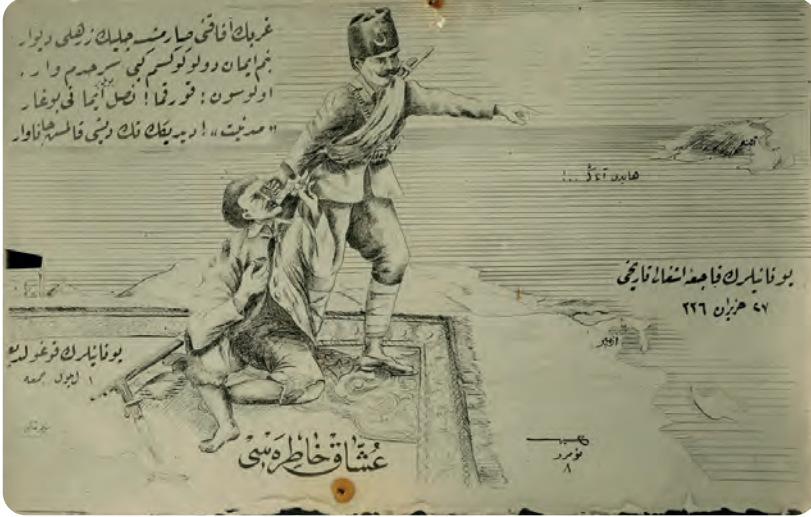 غربك آفاقنی صارمشسه چلیك زرهلی دیوار
بنم ایمان دولو كوكسم كبی سرحدم وار .
اولوسون ! قورقما ! نصل ایمانی بوغار
« مدنیت » ! دیدیكك تك دیشی قالمش جاناوار
هایدی
یونانیلرك فاجعه اشغال تاریخی
٢٧ حزیران ٣٣٦
ازمیر
یونانیلرك قوغولدیغی
١ ایلول جمعه
عشاق خاطره سی
نومرو
٨